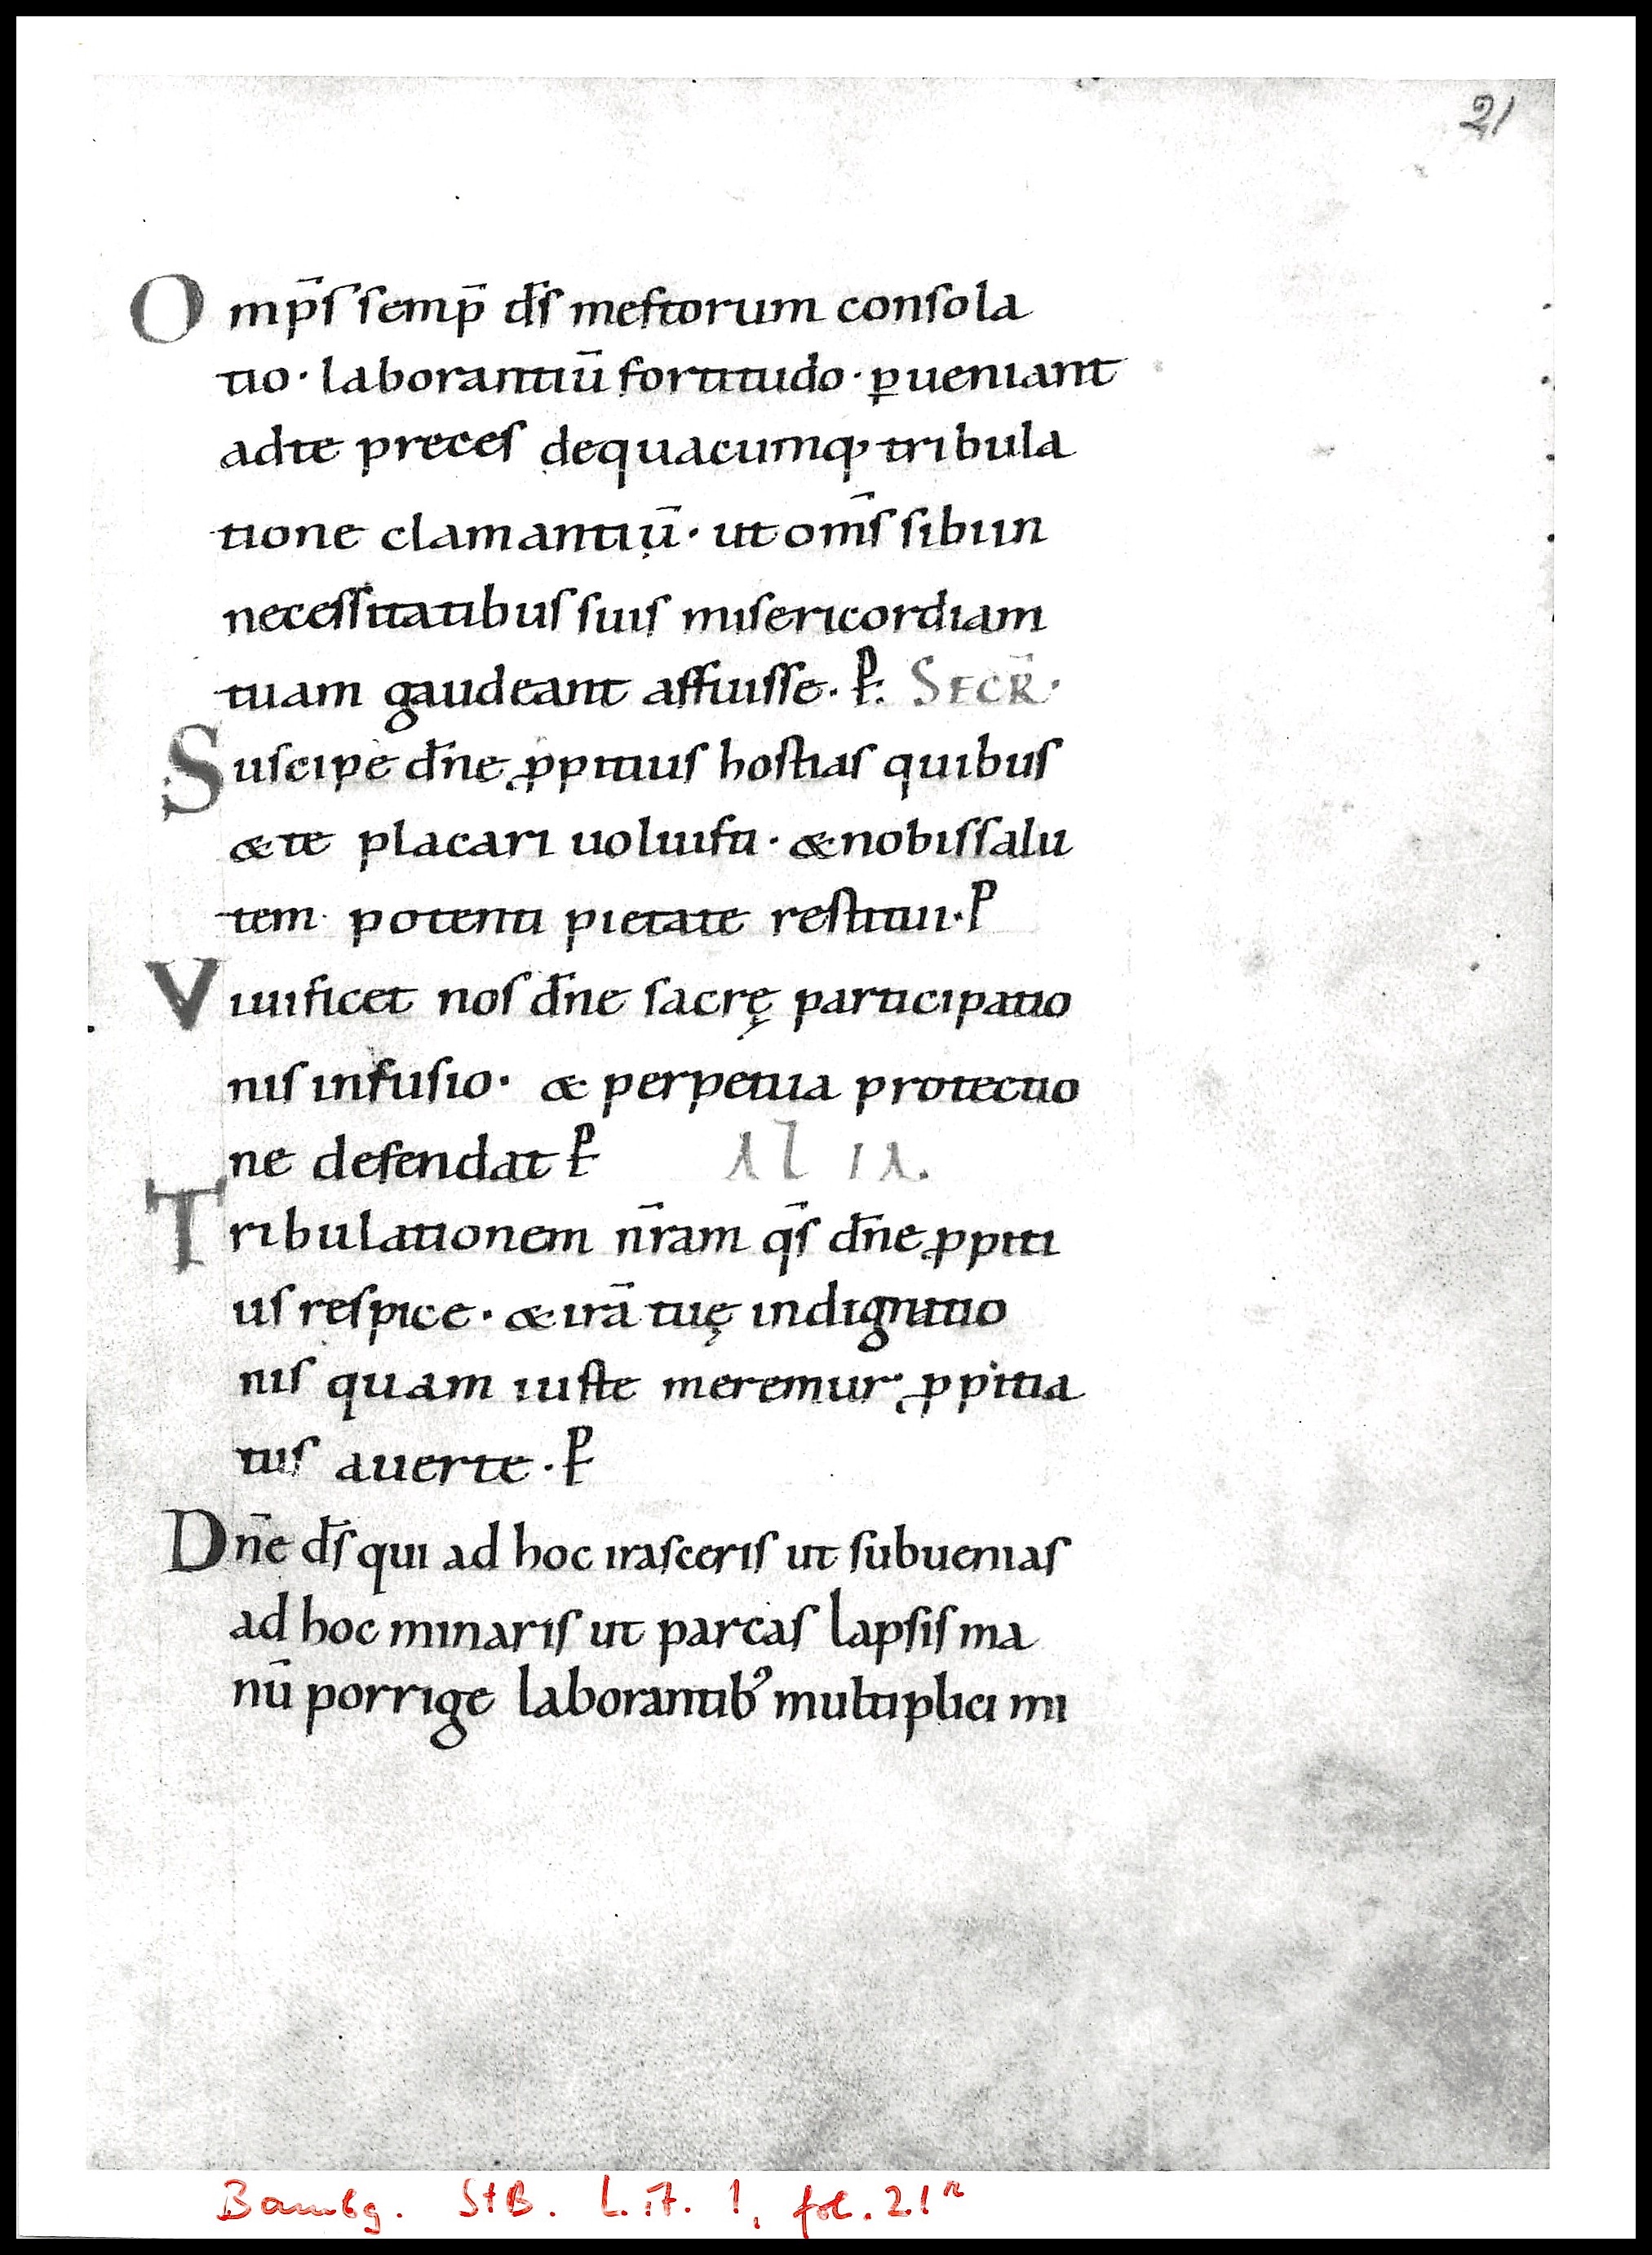 21
Omp̄s semp̄ d̄s mestorum consola
tio· laborantiū fortitudo· ꝑueniant
adte preces dequacumq; tribula
tione clamantiū· ut om̄s sibi in
necessitatibus suis misericordiam
tuam gaudeant affuisse. P̵: SECR̄·
Suscipe dn̄e ꝓpitius hostias quibus
& te placari uoluisti· & nobis salu
tem potenti pietate restitui· P̵
Viuificet nos dn̄e sacrę participatio
nis infusio· & perpetua protectio
ne defendat P̵ ALIA.
Tribulationem n̄ram qs̄ dn̄e ꝓpiti
us respice· & irā tuę indignatio
nis quam iuste meremur· ꝓpitia
tus auerte· P̵
Dn̄e d̄s qui ad hoc irasceris ut subuenias
ad hoc minaris ut parcas lapsis ma
nū porrige laborantibꝰ multiplici mi
Bambg. StB. Lit. 1, fol. 21r